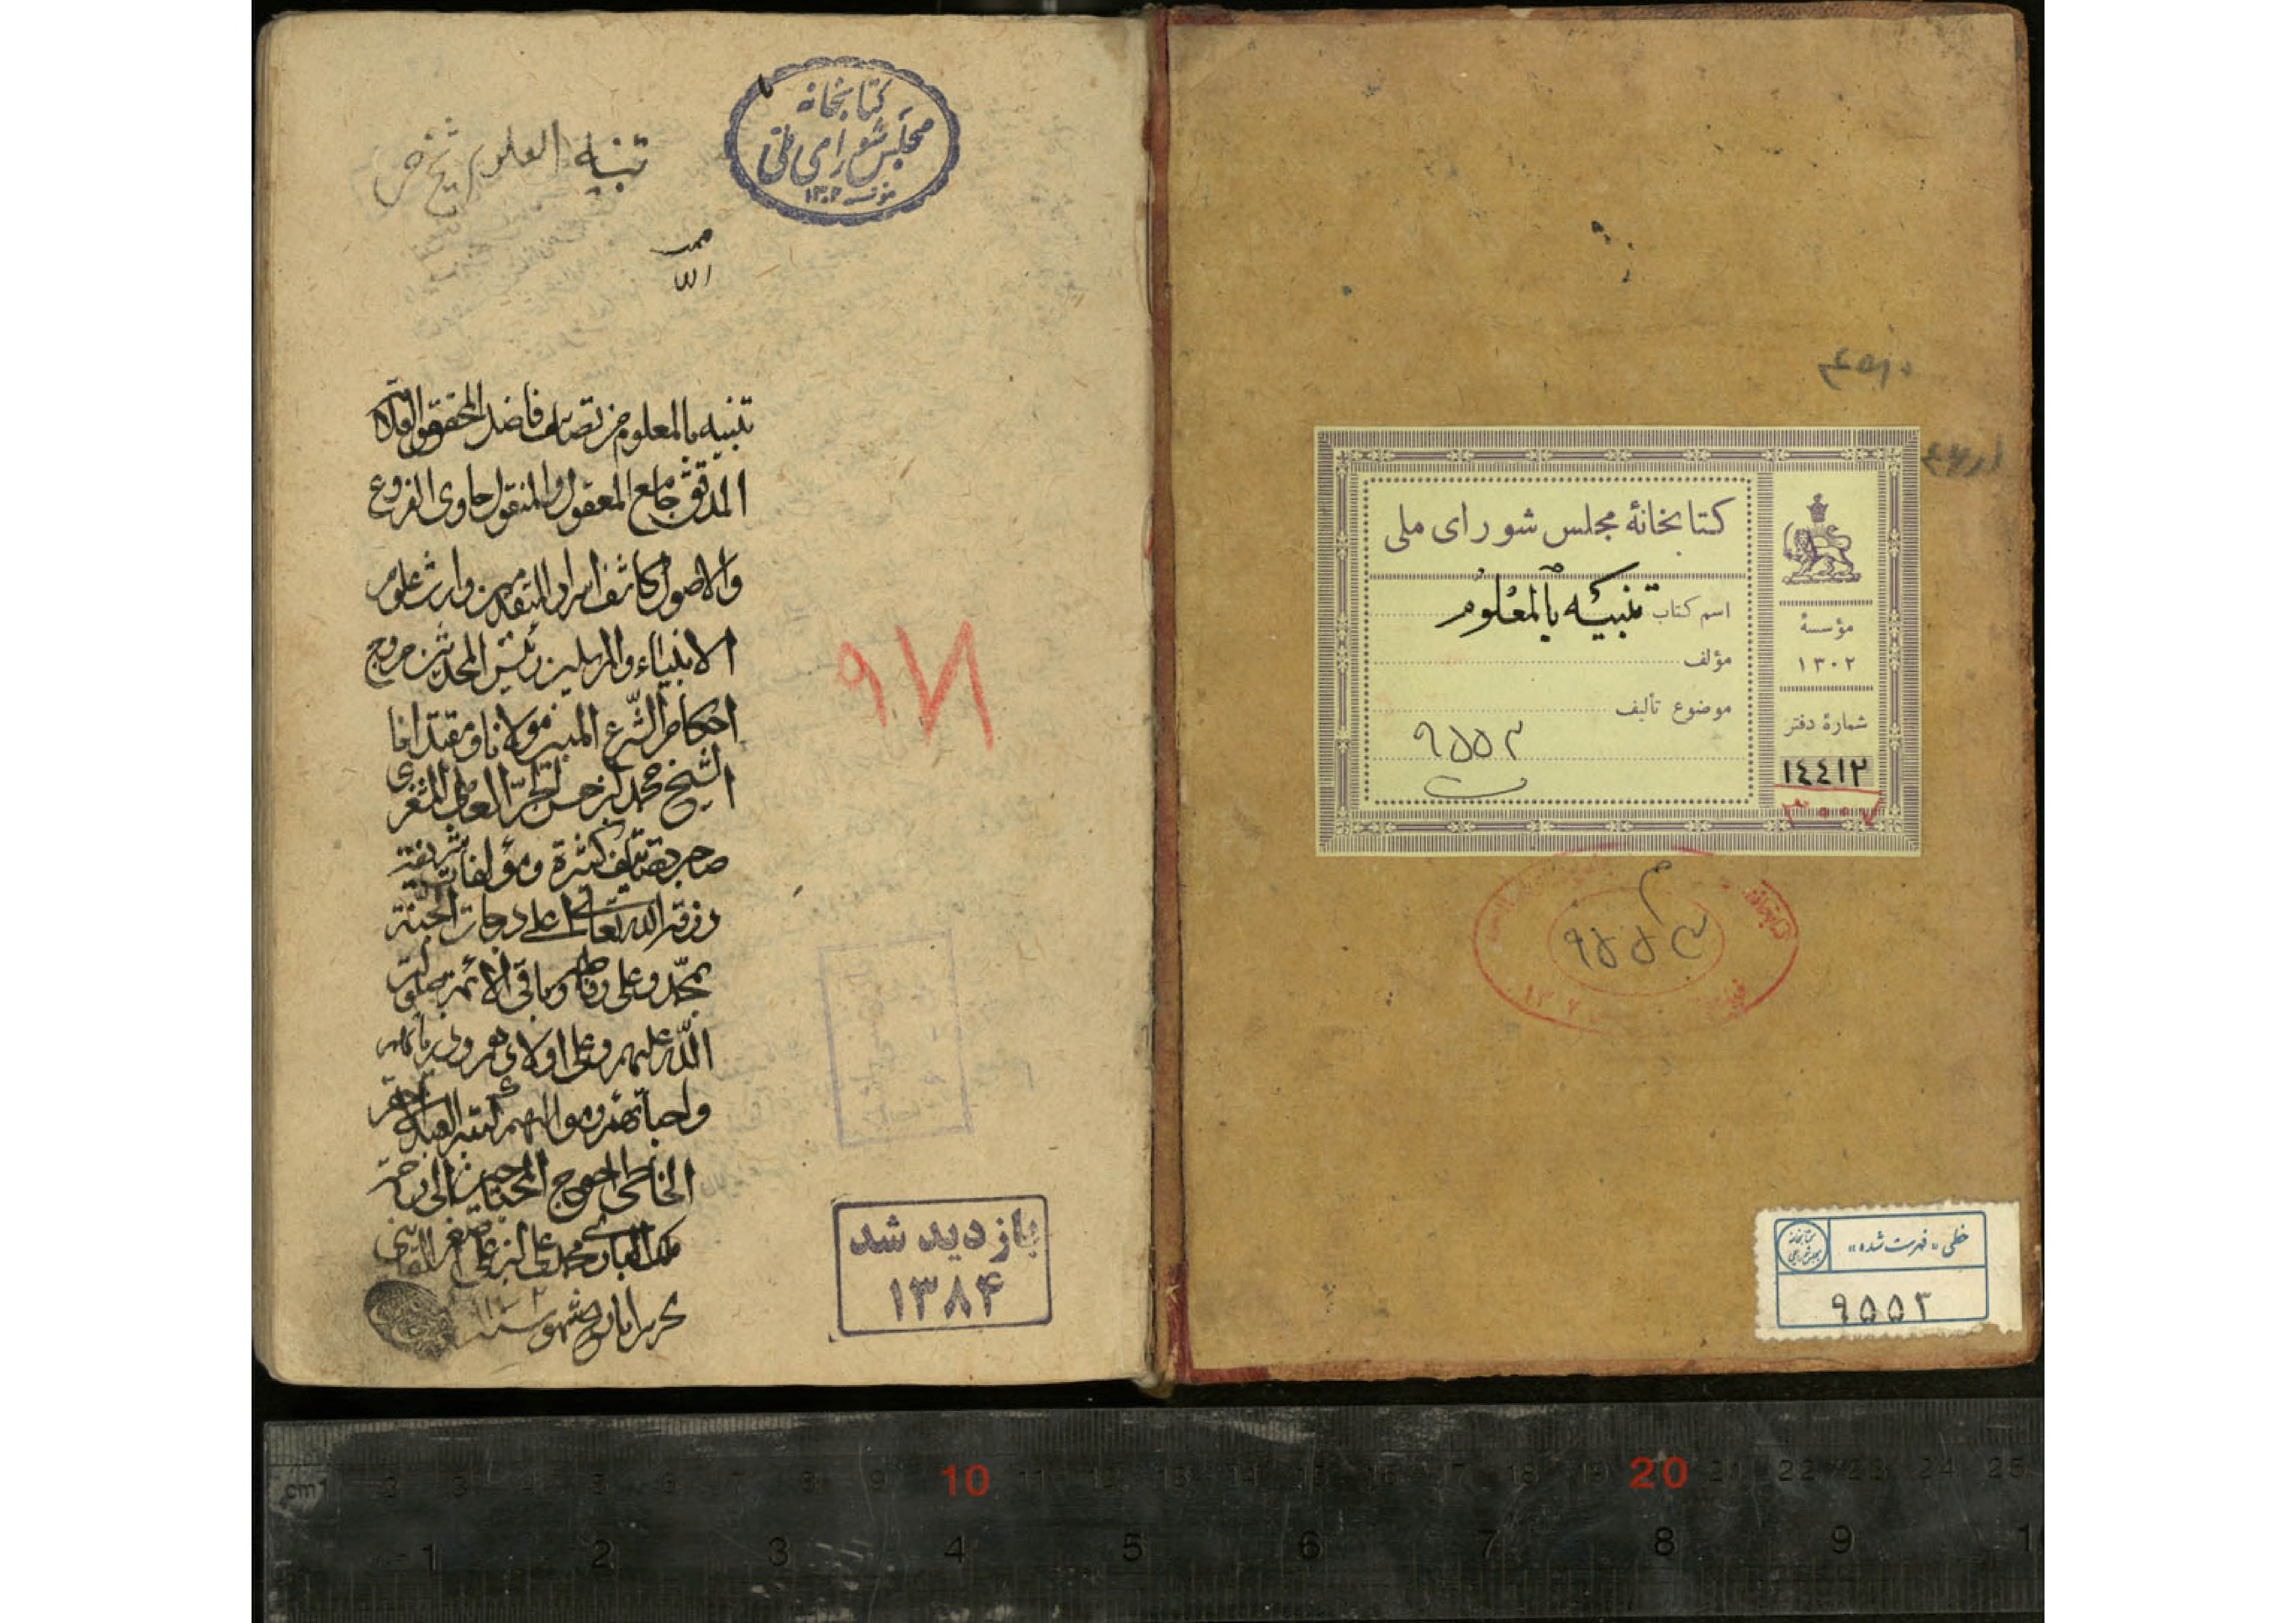 کتابخانهٔ مجلس شورای ملی
اسم کتاب تنبیه بالمعلوم
مؤلف
موضوع تألیف
۹۵۵۳
مؤسسهٔ
۱۳۰۲
شمارهٔ دفتر
۱٤٤۱۲
۹۵۵۳
خطی «فهرست شده»
۹۵۵۳
کتابخانه
مجلس شورای ملی
۱۳۰۲
تنبیه المعلوم شیخ حر
محمد
الله
تنبیه بالمعلوم من تصانیف فاضل المحقق والعلامة
المدقق جامع المعقول والمنقول حاوی الفروع
والاصول کاشف اسرار المتقدمین وارث علوم
الانبیاء والمرسلین رئیس المحدثین مروج
احکام الشرع المبین مولانا ومقتدانا
الشیخ محمد بن حسن الحرّ العاملی المشغری
صاحب تصانیف کثیرة ومؤلفات شریفة
رزقه الله تعالی اعلی درجات الجنّة
بمحمّد وعلی وفاطمة وباقی الائمة صلوات
اللّه علیهم وعلی اولادهم وذریاتهم
واحبائهم وموالیهم العبد الاحقر
الخاطی احوج المحتاجین الی رحمة
ملک الباری محمد علی ابن علی اصغر القاینی
تحریرا بتاریخ شهور سنه
۹۷۱
بازدید شد
۱۳۸۴
cm1 2 3 4 5 6 7 8 9 10 11 12 13 14 15 16 17 18 19 20 21 22 23 24 25
1 2 3 4 5 6 7 8 9 1